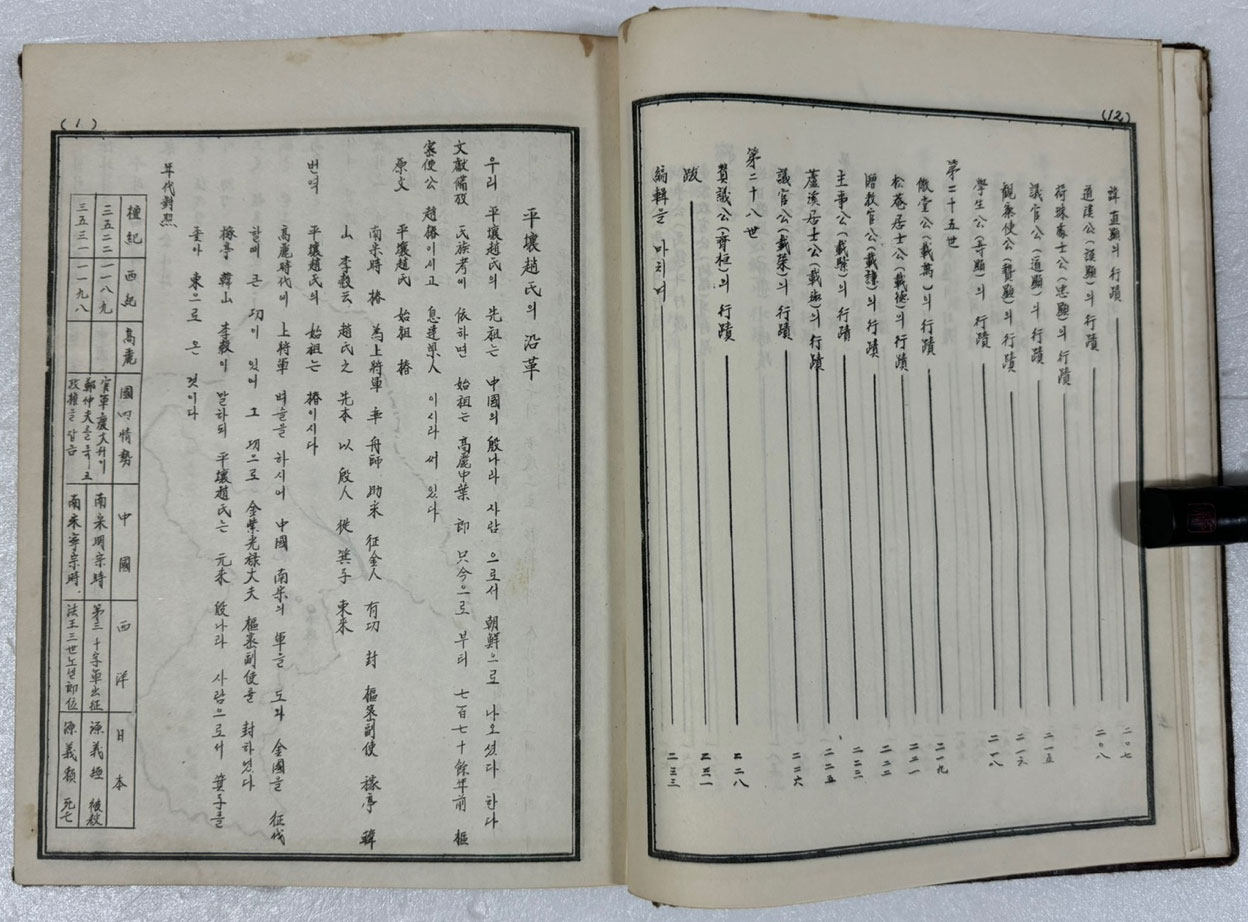 (12)
諱直顯의 行蹟 二○七
逎溪公(謨顯)의 行蹟 二○八
荷珠處士公(忠顯)의 行蹟 二一五
議官公(道顯)의 行蹟 二一六
觀察使公(贊顯)의 行蹟
學生公(奇顯)의 行蹟 二一八
第二十五世
傲堂公(載萬)의 行蹟 二一九
松菴居士公(載極)의 行蹟 二二一
贈教官公(載謙)의 行蹟 二二二
主事公(載驟)의 行蹟 二二三
蘆溪居士公(載珌)의 行蹟 二二五
議官公(載榮)의 行蹟 二二六
第二十八世
贊議公(齊桓)의 行蹟 二二八
跋 二三一
編輯을 마치며 二三三
(1)
平壤趙氏의 沿革
우리 平壤趙氏의 先祖는 中國의 殷나라 사람 으로서 朝鮮으로 나오셨다 한다
文獻備攷 氏族考에 依하면 始祖는 高麗中葉 即 只今으로 부터 七百七十餘年前 樞
密使公 趙椿이시고 息達縣人 이시라 써 있다
原文 平壤趙氏 始祖 椿
南宋時 椿 為上將軍 率舟師 助宋 征金人 有功 封 樞密副使 稼亭 韓
山 李穀云 趙氏之 先本 以 殷人 從 箕子 東來
번역 平壤趙氏의 始祖는 椿이시다
高麗時代에 上將軍 벼슬을 하시며 中國 南宋의 軍을 도와 金國을 征伐
할때 큰 功이 있어 그 功으로 金紫光祿大夫 樞密副使를 封하였다
稼亭 韓山 李穀이 말하되 平壤趙氏는 元來 殷나라 사람으로서 箕子를
좇아 東으로 온 것이다
年代對照
檀紀 西紀 高麗 國內情勢 中國 西洋 日本
三五二二 一一八九 官軍慶大升이 鄭仲夫를 죽이고 政權을 잡음 南宋明宗時 第三十字軍出征 源義經 被殺
三五三一 一一九八 南宋寧宗時 法王三世노센即位 源義賴 死亡